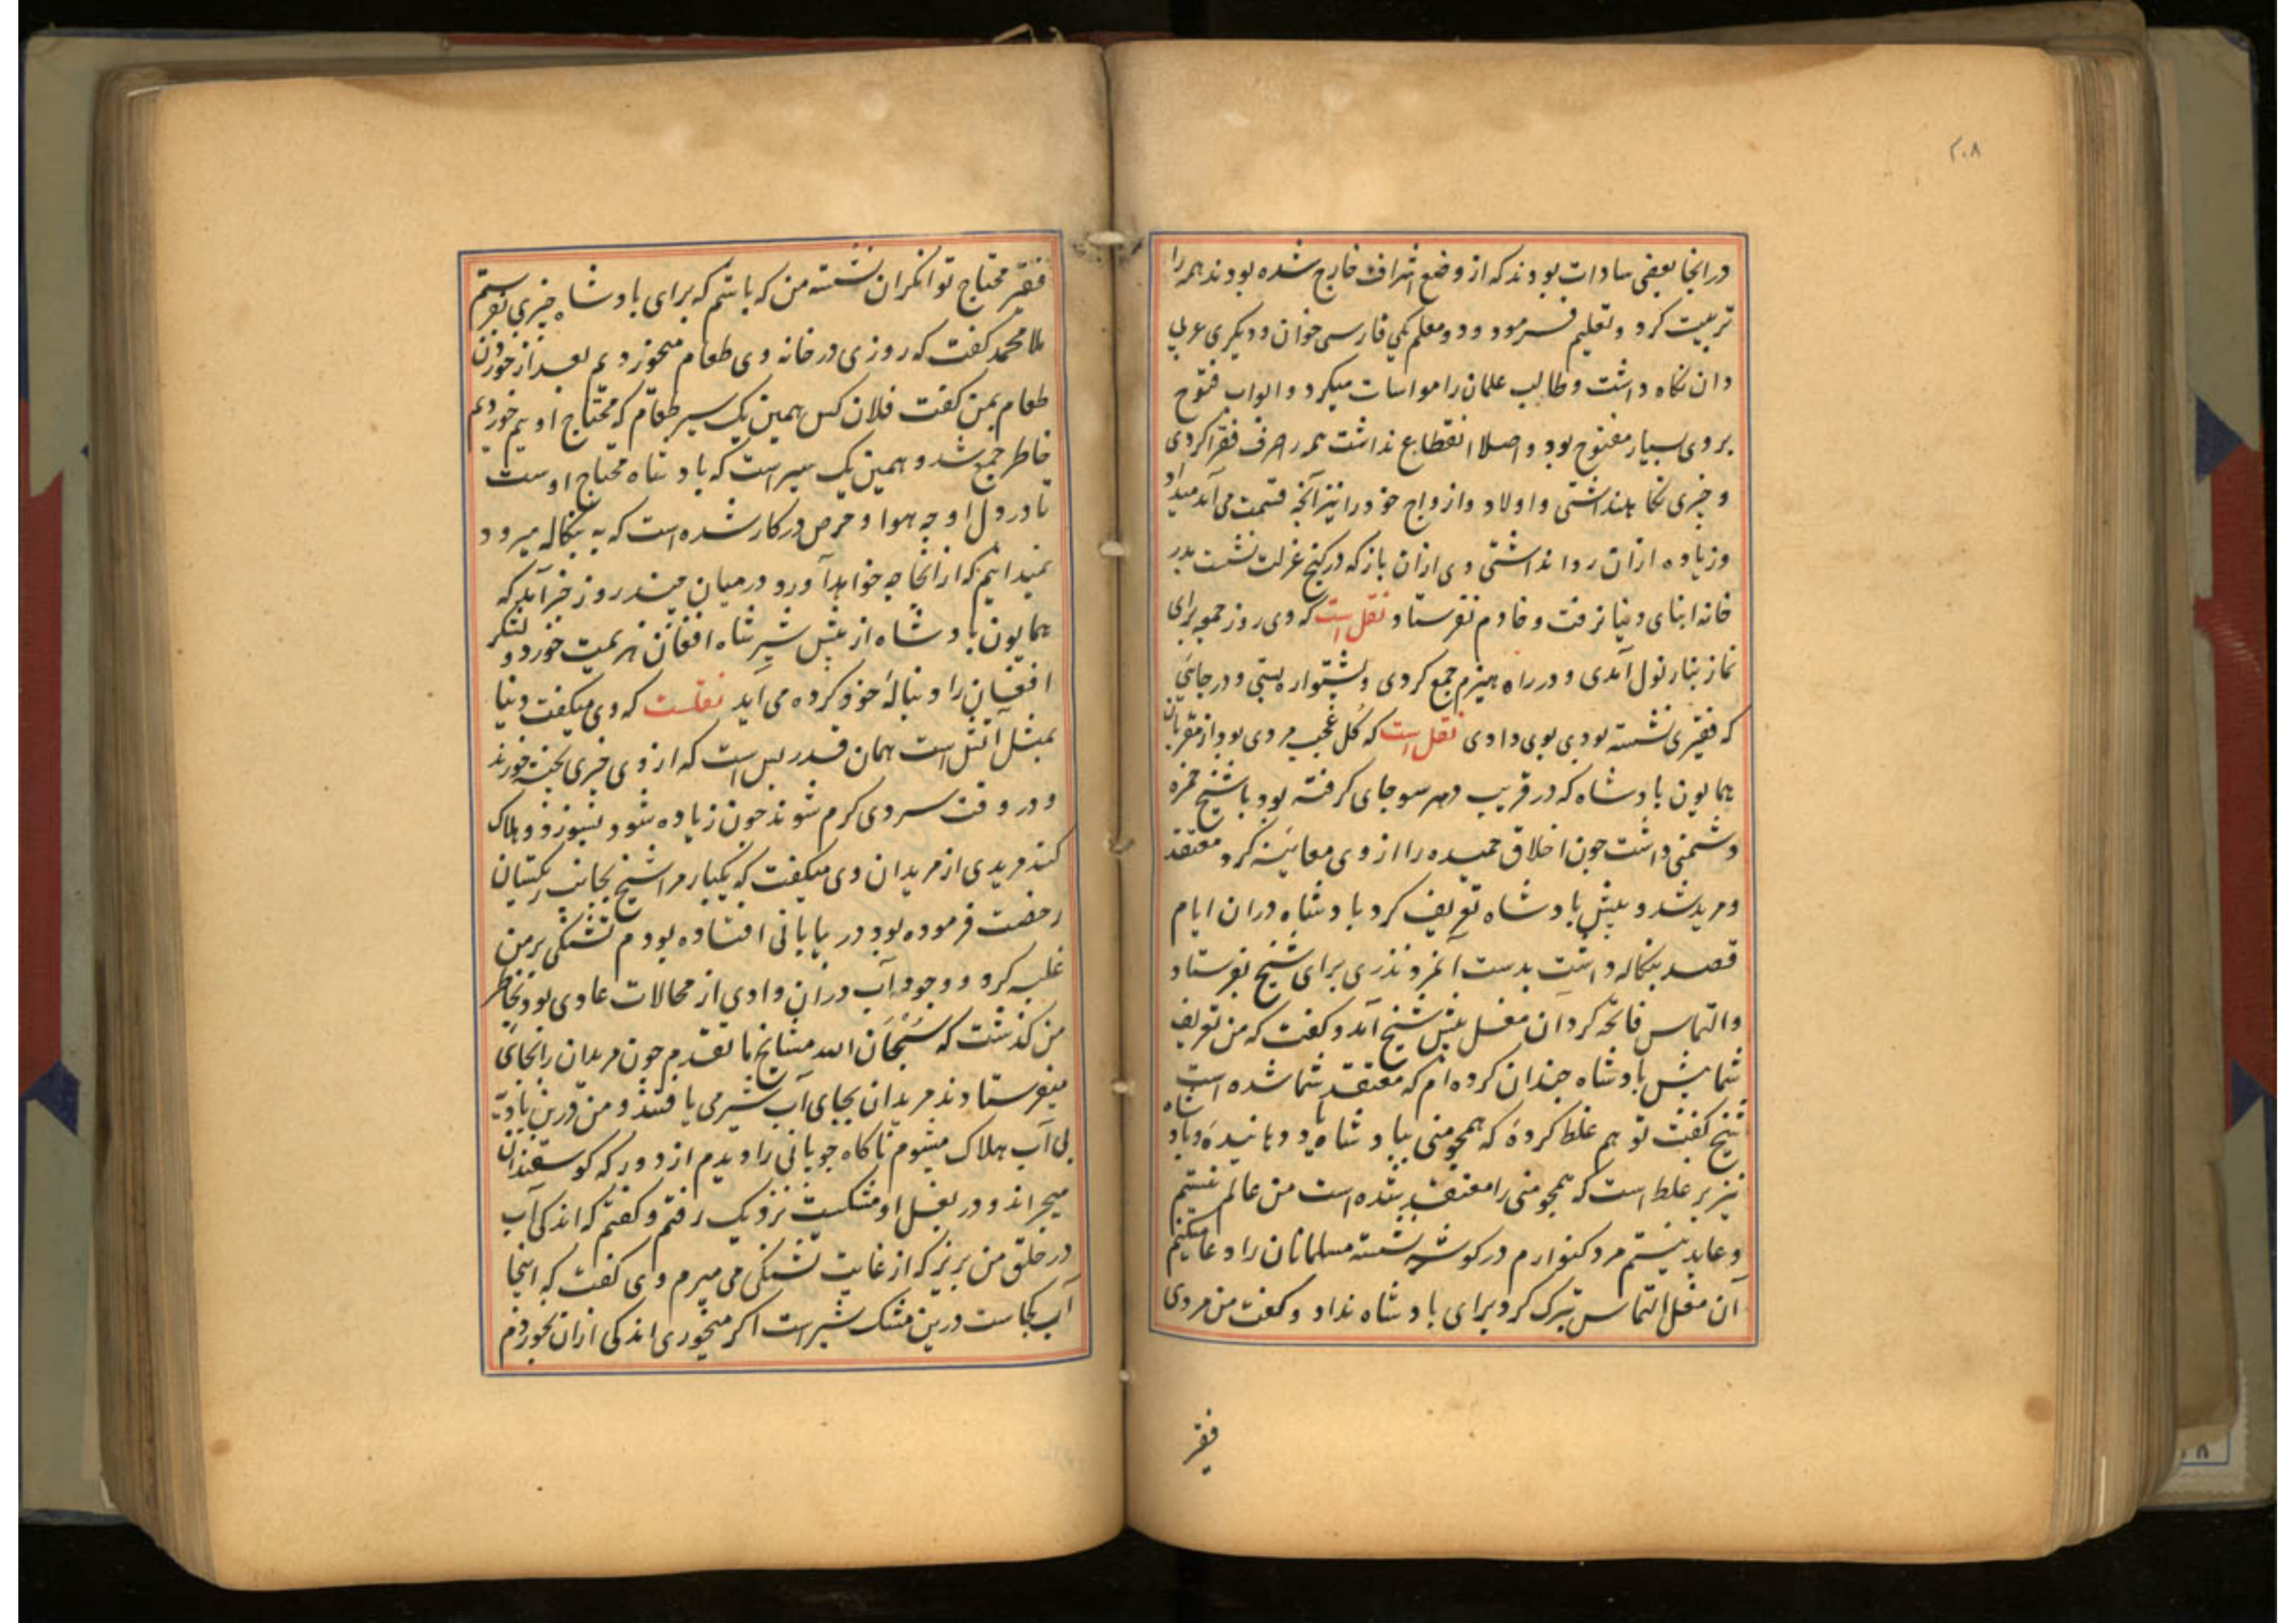 ۲۰۸
درانجا بعضی سادات بودند که از وضع اشراف خارج شده بودند همه را
تربیت کرد و تعلیم فرمود و دو معلم یکی فارسی خوان و دیگری عربی
دان نگاه داشت و طالب علمان را مواسات میکرد و ابواب فتوح
بروی بسیار مفتوح بود و اصلا انقطاع نداشت همه را صرف فقرا کردی
و چیزی نگاه نداشتی و اولاد و ازواج خود را نیز آنچه قسمت می آمد میداد
و زیاده ازان روا نداشتی وی ازان باز که در کنج عزلت نشست بدر
خانه ابنای دنیا نرفت و خادم نفرستاد نقل است که وی روز جمعه برای
نماز بنارنول آمدی و در راه هیزم جمع کردی و پشتواره بستی و در جائی
که فقیری نشسته بودی بوی دادی نقل است که گل عجب مردی بود از مقربان
همایون بادشاه که در قریب دهرسو جای گرفته بود با شیخ حمزه
دشمنی داشت چون اخلاق حمیده را از وی معاینه کرد معتقد
و مرید شد و پیش بادشاه تعریف کرد بادشاه دران ایام
قصد بنگاله داشت بدست آنمرد نذری برای شیخ بفرستاد
و التماس فاتحه کرد آن مغل پیش شیخ آمد و گفت که من تعریف
شما پیش بادشاه چندان کرده ام که معتقد شما شده است
شیخ گفت تو هم غلط کردهٔ که همچو منی ببادشاه یاد دهانیدهٔ و بادشاه
نیز بر غلط است که همچو منی را معتقد شده است من عالم نیستم
و عابد نیستم مرد کنوارم در گوشه نشسته مسلمانان را دعا میکنم
آن مغل التماس تبرک کرد برای بادشاه نداد و گفت من مردی
فقیر
فقیر محتاج توانکران نشسته من که باشم که برای بادشاه چیزی بفرستم
ملا محمد گفت که روزی در خانه وی طعام میخوردیم بعد از خوردن
طعام بمن گفت فلان کس همین یک سیر طعام که محتاج او یم خوردیم
خاطر جمع شد و همین یک سیر است که بادشاه محتاج اوست
تا در دل او چه هوا و حرص در کار شده است که به بنگاله میرود
نمیدانیم که از انجا چه خواهد آورد در میان چند روز خبر آمد که
همایون بادشاه از پیش شیر شاه افغان هزیمت خورد و لشکر
افغان را دنبالهٔ خود کرده می آید نقلست که وی میگفت دنیا
بمثل آتش است همان قدر بس است که از وی چیزی پخته خورند
و در وقت سردی گرم شوند چون زیاده شود بسوزد و هلاک
کند مریدی از مریدان وی میگفت که یکبار مرا شیخ بجانب ریگستان
رخصت فرموده بود در بیابانی افتاده بودم تشنگی بر من
غلبه کرد و وجود آب دران وادی از محالات عادی بود بخاطر
من گذشت که سُبْحَان الله مشایخ ما تقدم چون مریدان را بجای
میفرستادند مریدان بجای آب شیر می یافتند و من درین بادیه
بی آب هلاک میشوم ناگاه چوپانی را دیدم از دور که گوسفندان
میچراند و در بغل او مشکیست نزدیک رفتم و گفتم که اندکی آب
در حلق من بریز که از غایت تشنگی می میرم وی گفت که اینجا
آب کجاست درین مشک شیر است اگر میخوری اندکی ازان بخوردم